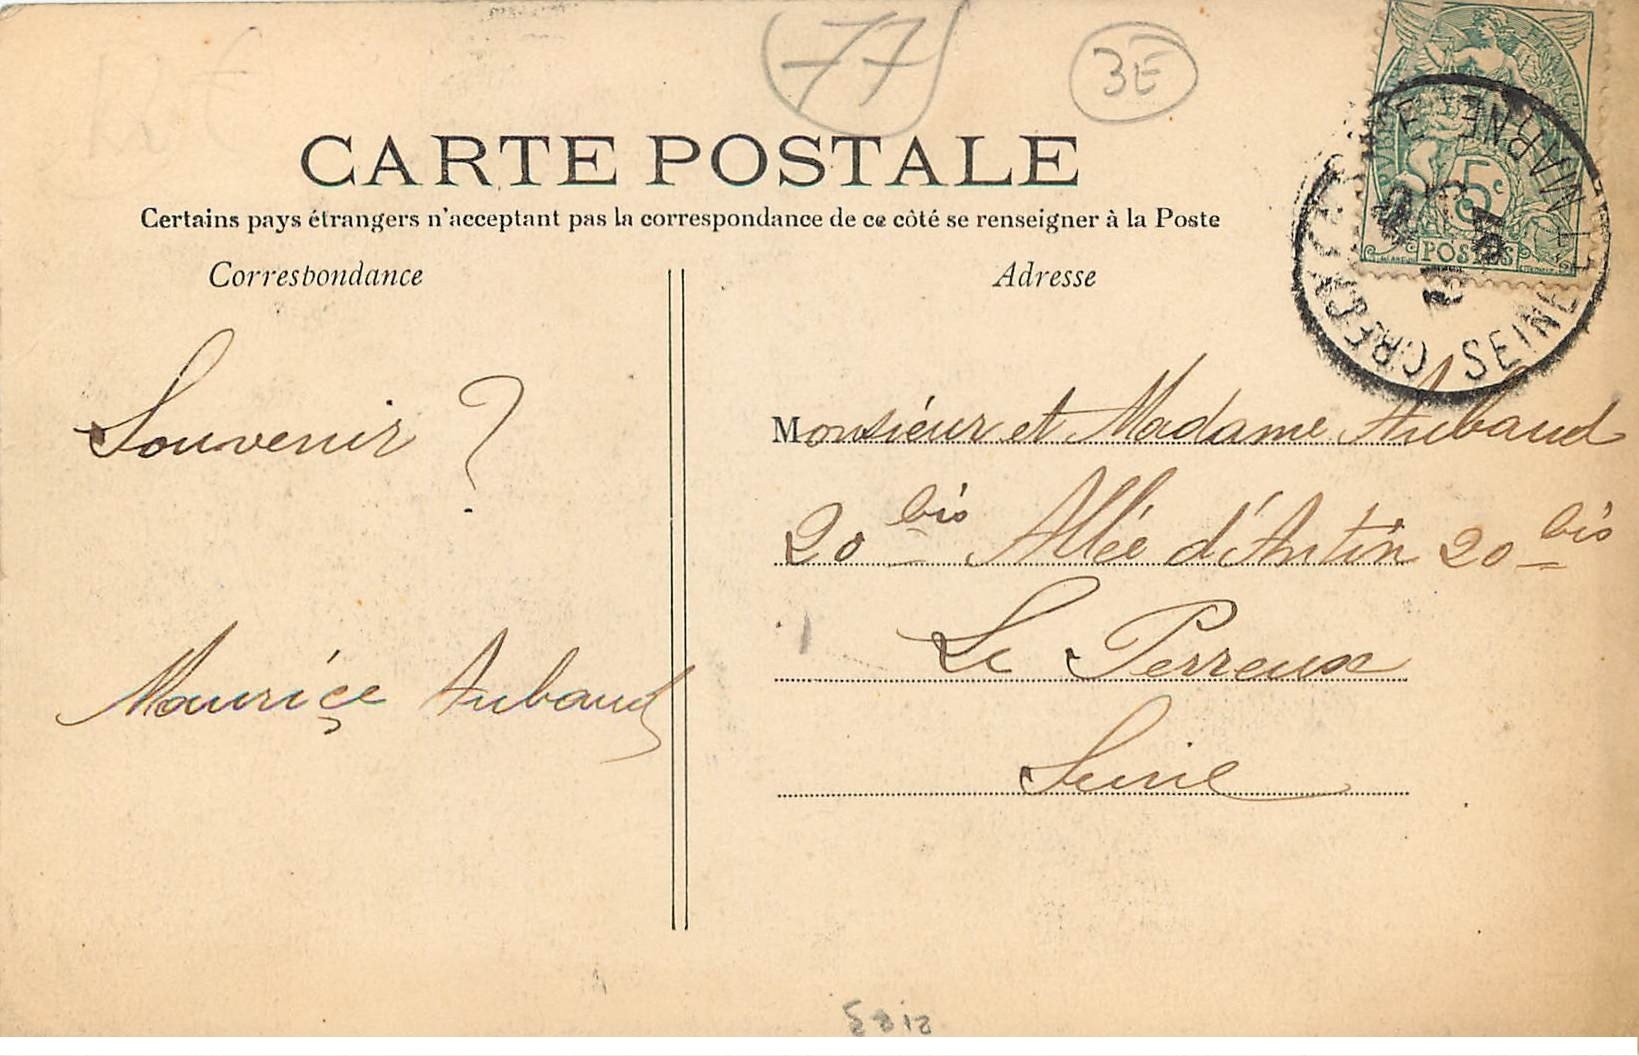 77
3E
CARTE POSTALE
Certains pays étrangers n'acceptant pas la correspondance de ce côté se renseigner à la Poste
Correspondance
Adresse
5c
POSTES
CRECY
SEINE ET MARNE
Souvenir ?
Maurice Aubaud
Monsieur et Madame Aubaud
20 bis Allée d'Antin 20 bis
Le Perreux
Seine